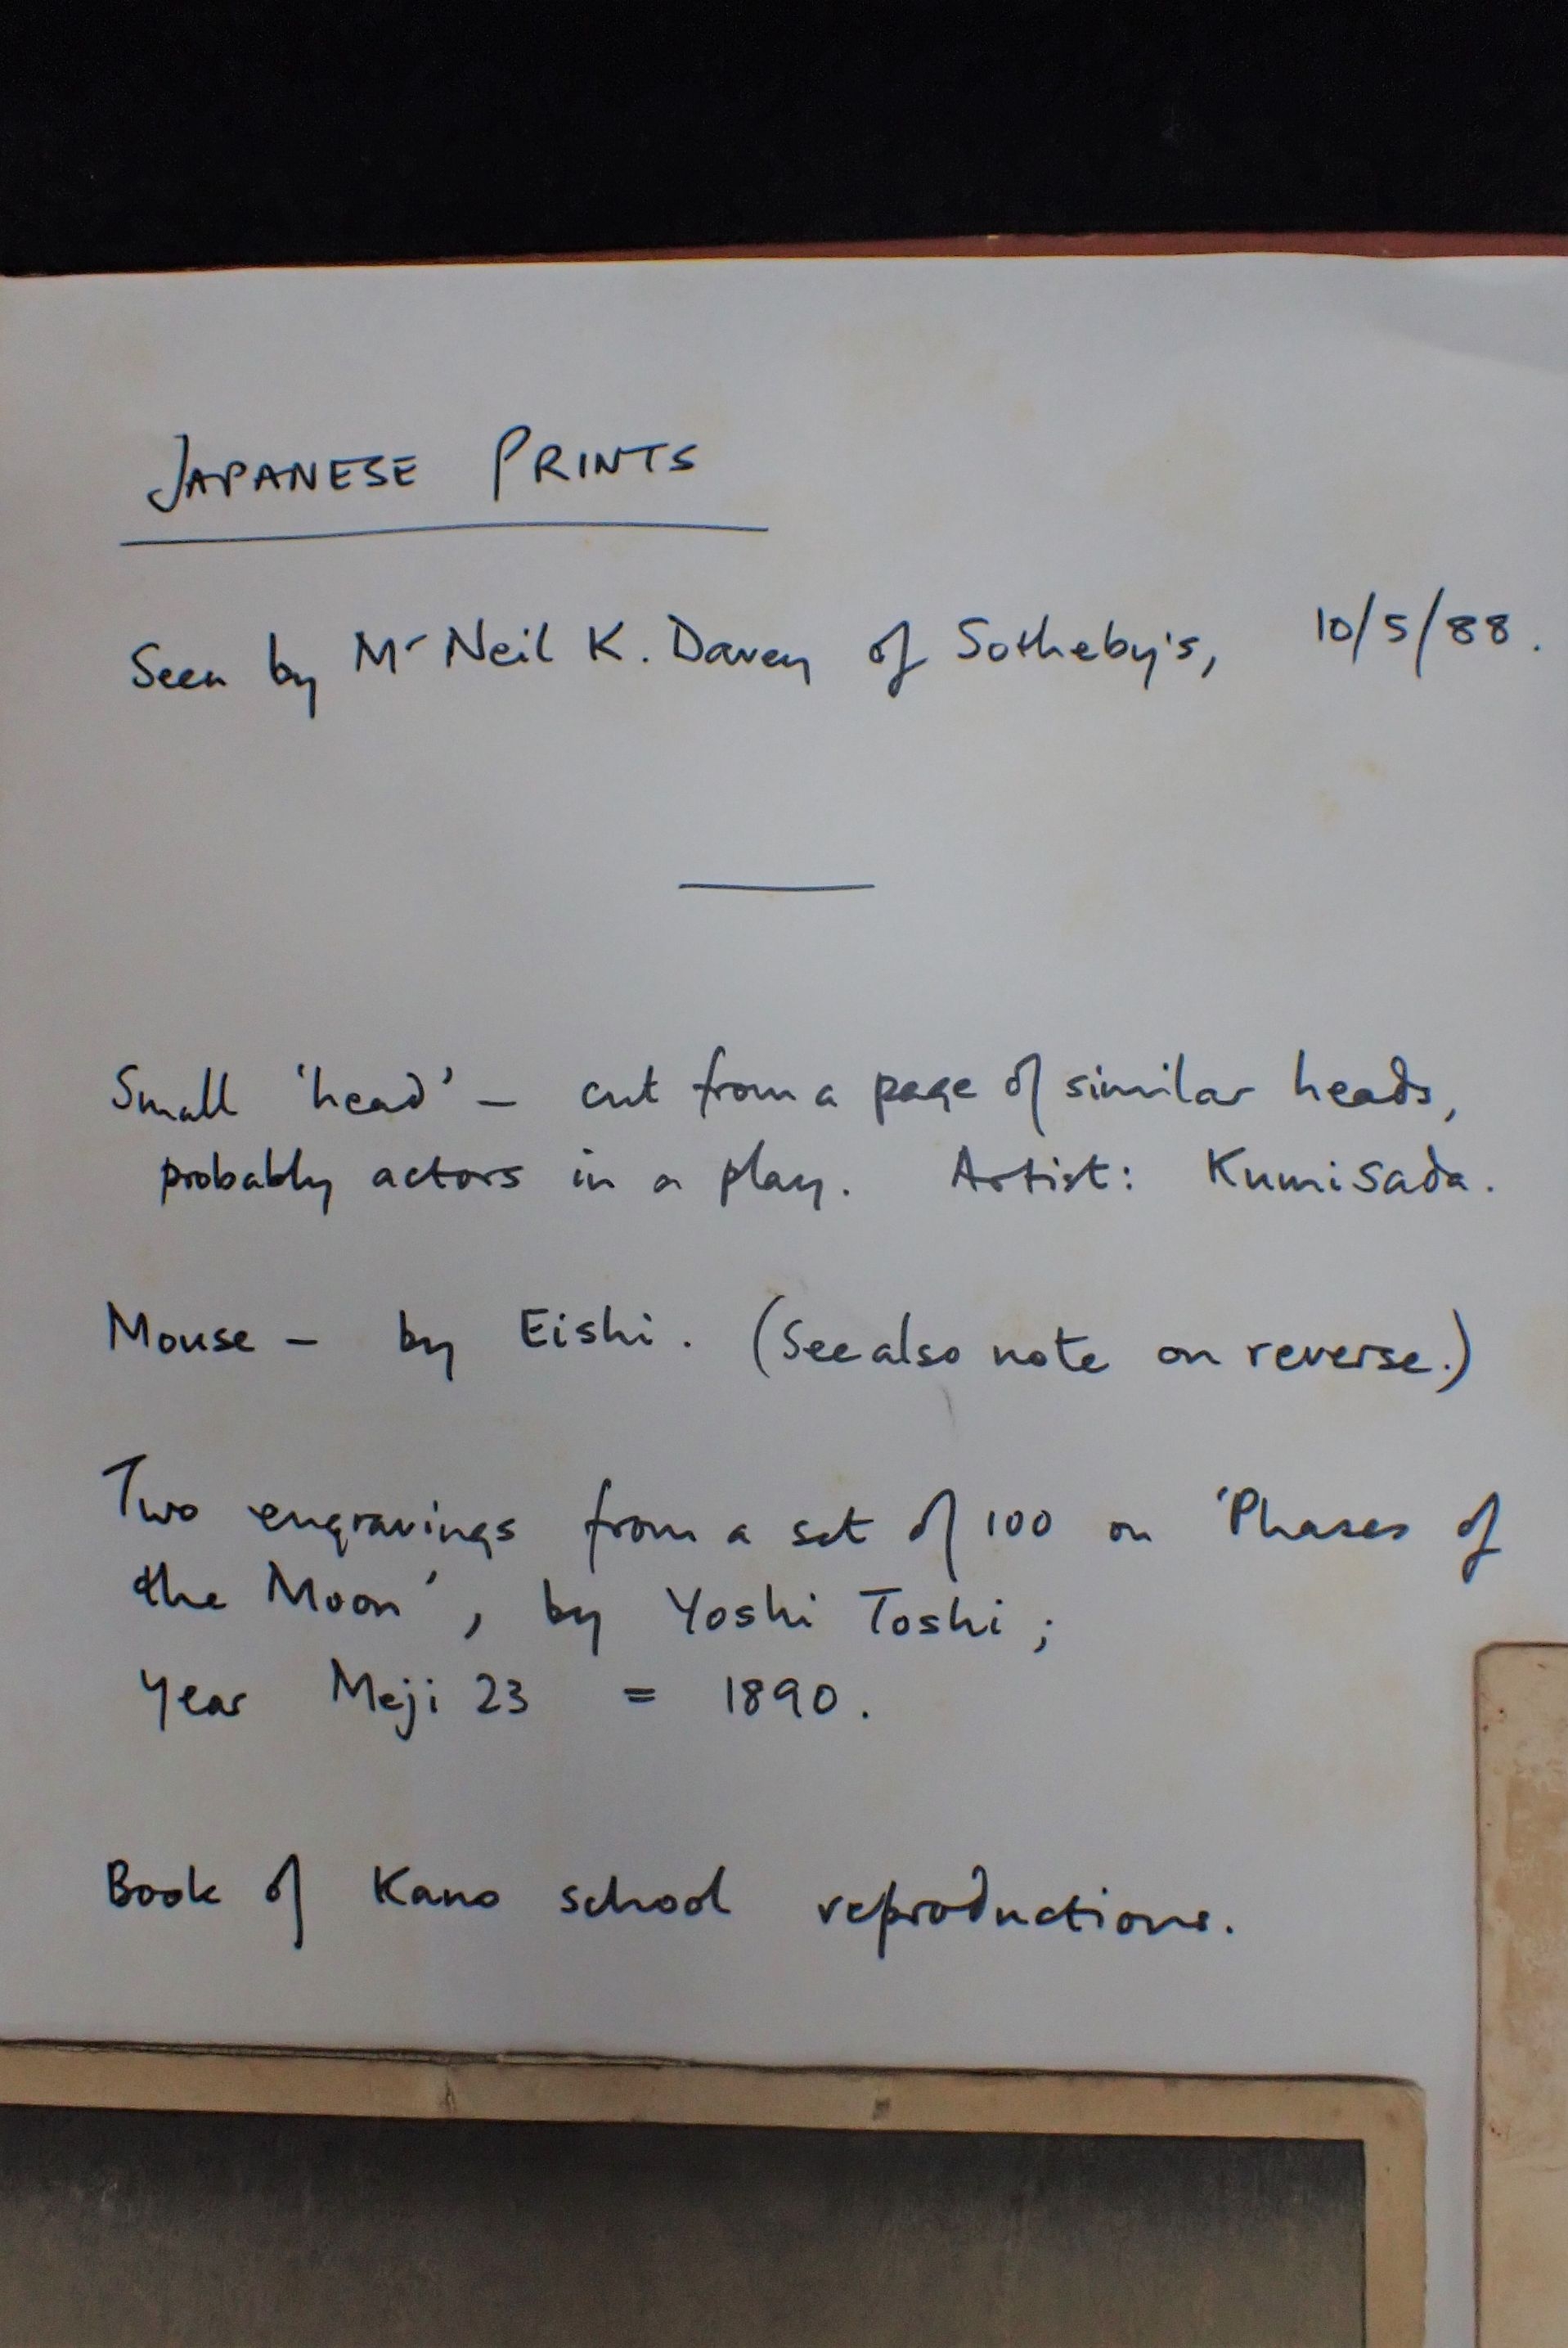 JAPANESE PRINTS
Seen by Mr Neil K. Davey of Sotheby's, 10/5/88.
Small 'head' – cut from a page of similar heads,
probably actors in a play. Artist: Kumisada.
Mouse – by Eishi. (See also note on reverse.)
Two engravings from a set of 100 on 'Phases of
the Moon', by Yoshi Toshi;
Year Meji 23 = 1890.
Book of Kano school reproductions.